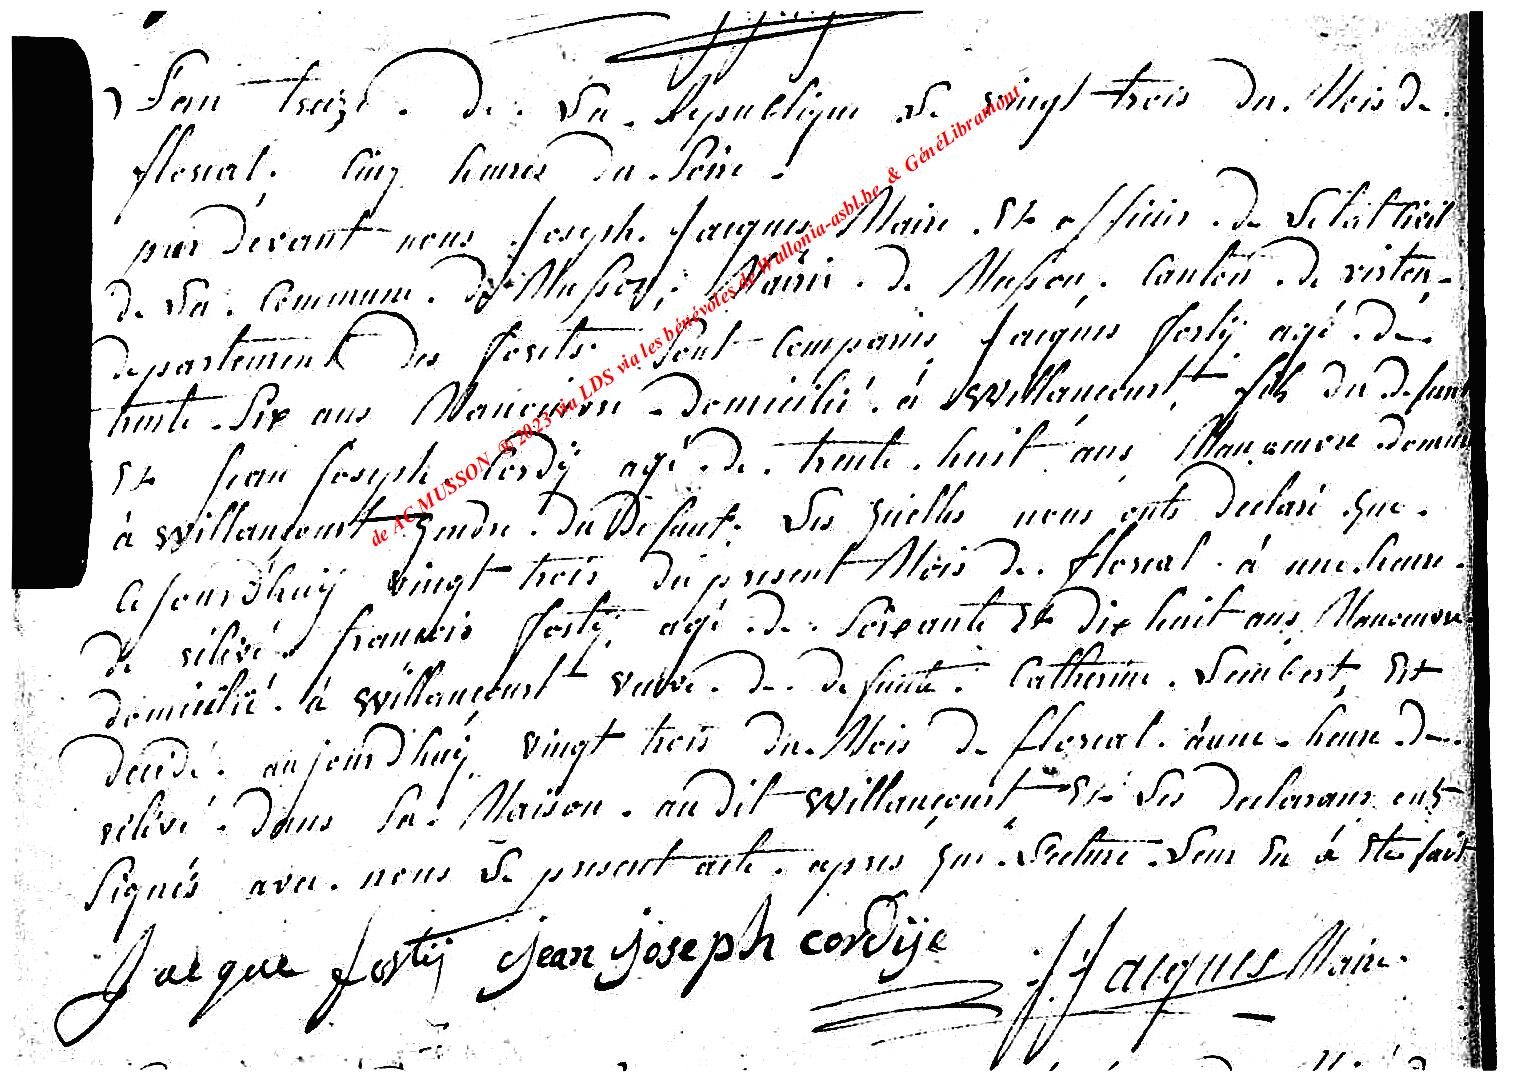 L'an treize de La Republique Le vingt trois du Mois de
floreal. Cinq heures du Soire.
par dévant nous Joseph Jacques Maire Et officier de Létat Civil
de La Commune de Musson, Mairie de Musson. Canton de virton,
departement des forêts Sont Comparus Jacques forty agé de
trente Six ans Manoeuvre domicilié à Willancourt, fils du defunt
Et Jean Joseph Cordÿ agé de trente huit ans Manoeuvre domicilié
à Willancourt gendre du Défunt. Les quelles nous onts declaré que
Cejourd'huÿ vingt trois du présent Mois de floreal à une heure
de rélévé francois forty agé de Soixante Et dix huit ans Manoeuvre
domicilié à Willancourt veuve de defunte Catherine Lembert, Est
décédé aujourd'huÿ vingt trois du Mois de floreal à une heure de
rélévé dans Sa Maison audit Willancourt Et Les declarans ont
Signés avec nous Le présent acte apres que Lecture Leur En à Eté fait
Jacque fortij Jean joseph cordÿe J. Jacques Maire
de AC MUSSON ® 2023 via LDS via les bénévoles de Wallonia-asbl.be & GénéLibramont